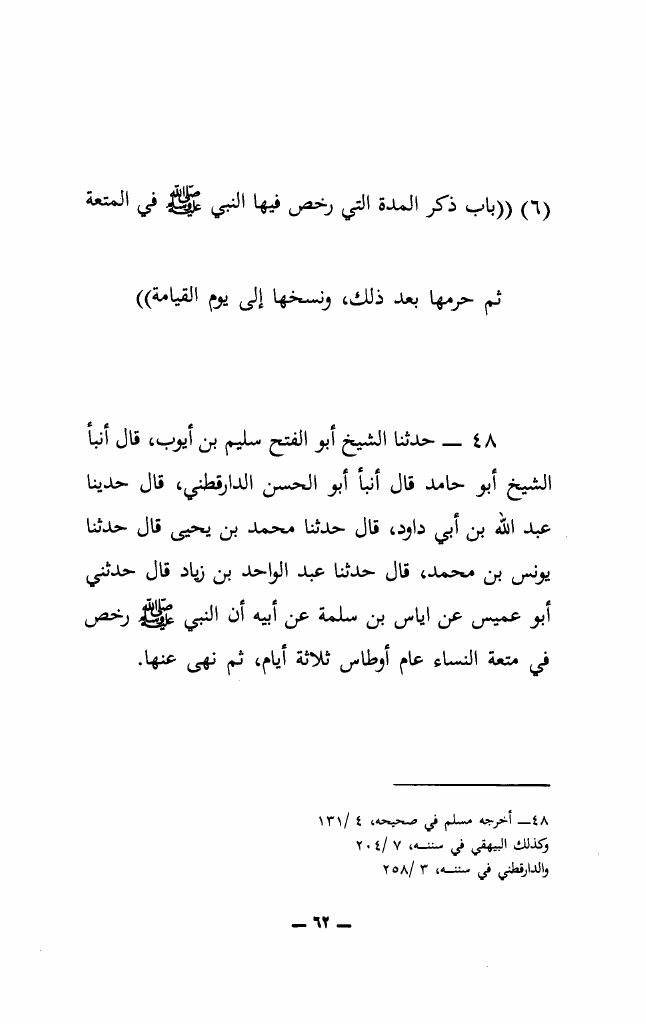 (٦) ((باب ذكر المدة التي رخص فيها النبي ﷺ في المتعة
ثم حرمها بعد ذلك، ونسخها إلى يوم القيامة))
٤٨ ــ حدثنا الشيخ أبو الفتح سليم بن أيوب، قال أنبأ
الشيخ أبو حامد قال أنبأ أبو الحسن الدارقطني، قال حدينا
عبد الله بن أبي داود، قال حدثنا محمد بن يحيى قال حدثنا
يونس بن محمد، قال حدثنا عبد الواحد بن زياد قال حدثني
أبو عميس عن اياس بن سلمة عن أبيه أن النبي ﷺ رخص
في متعة النساء عام أوطاس ثلاثة أيام، ثم نهى عنها.
٤٨ــ أخرجه مسلم في صحيحه، ٤ /١٣١
وكذلك البيهقي في سننـه، ٧ /٢٠٤
والدارقطني في سننـه، ٣ /٢٥٨
ــ ٦٢ ــ